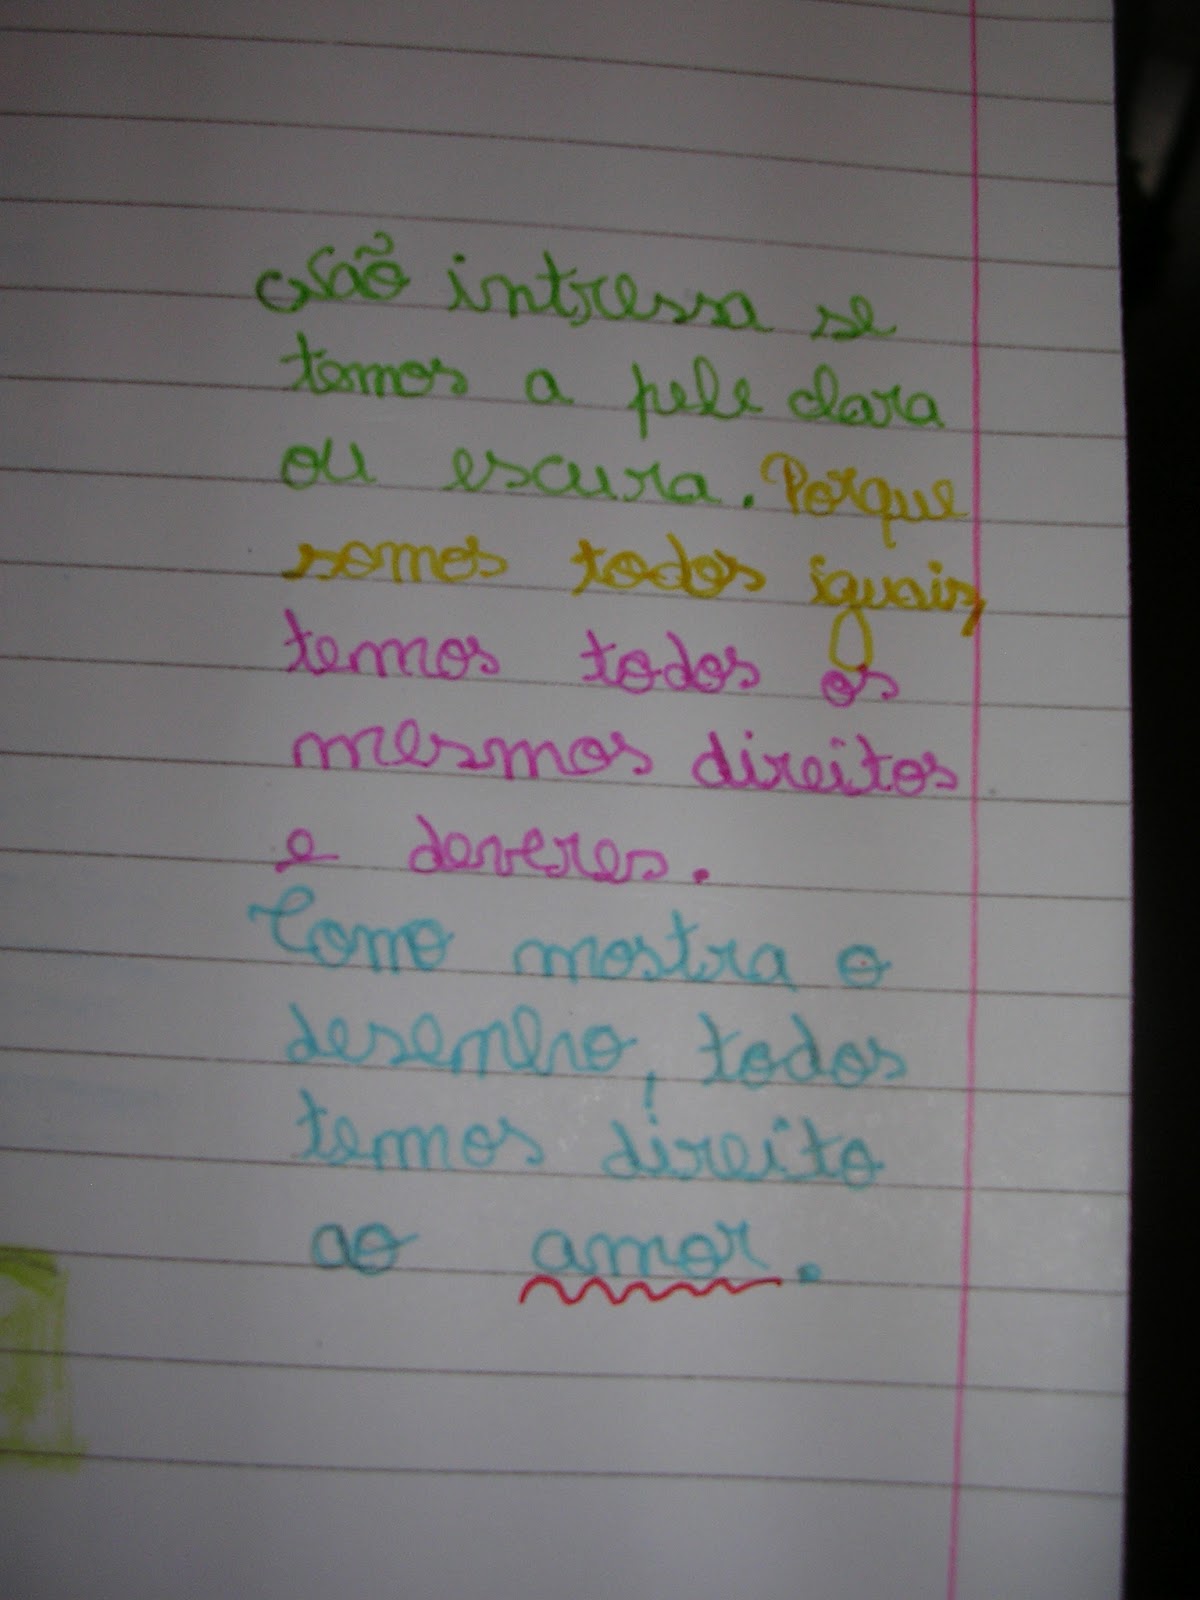 Não intressa se
temos a pele clara
ou escura. Porque
somos todos iguais,
temos todos os
mesmos direitos
e deveres.
Como mostra o
desenho, todos
temos direito
ao amor.